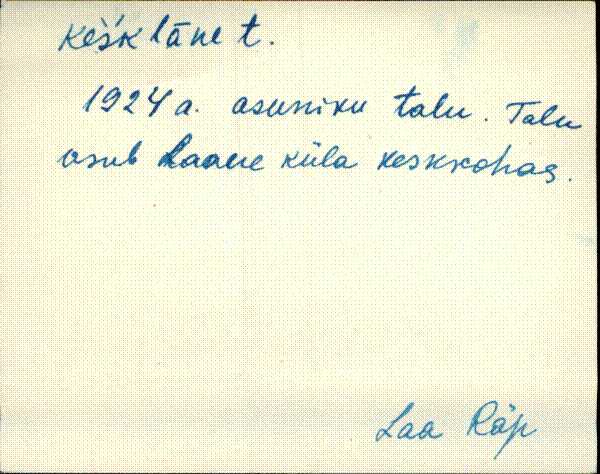 Keśk lāne t.
1924 a. asuniku talu. Talu
asub Laane küla keskkohas.
Laa Räp